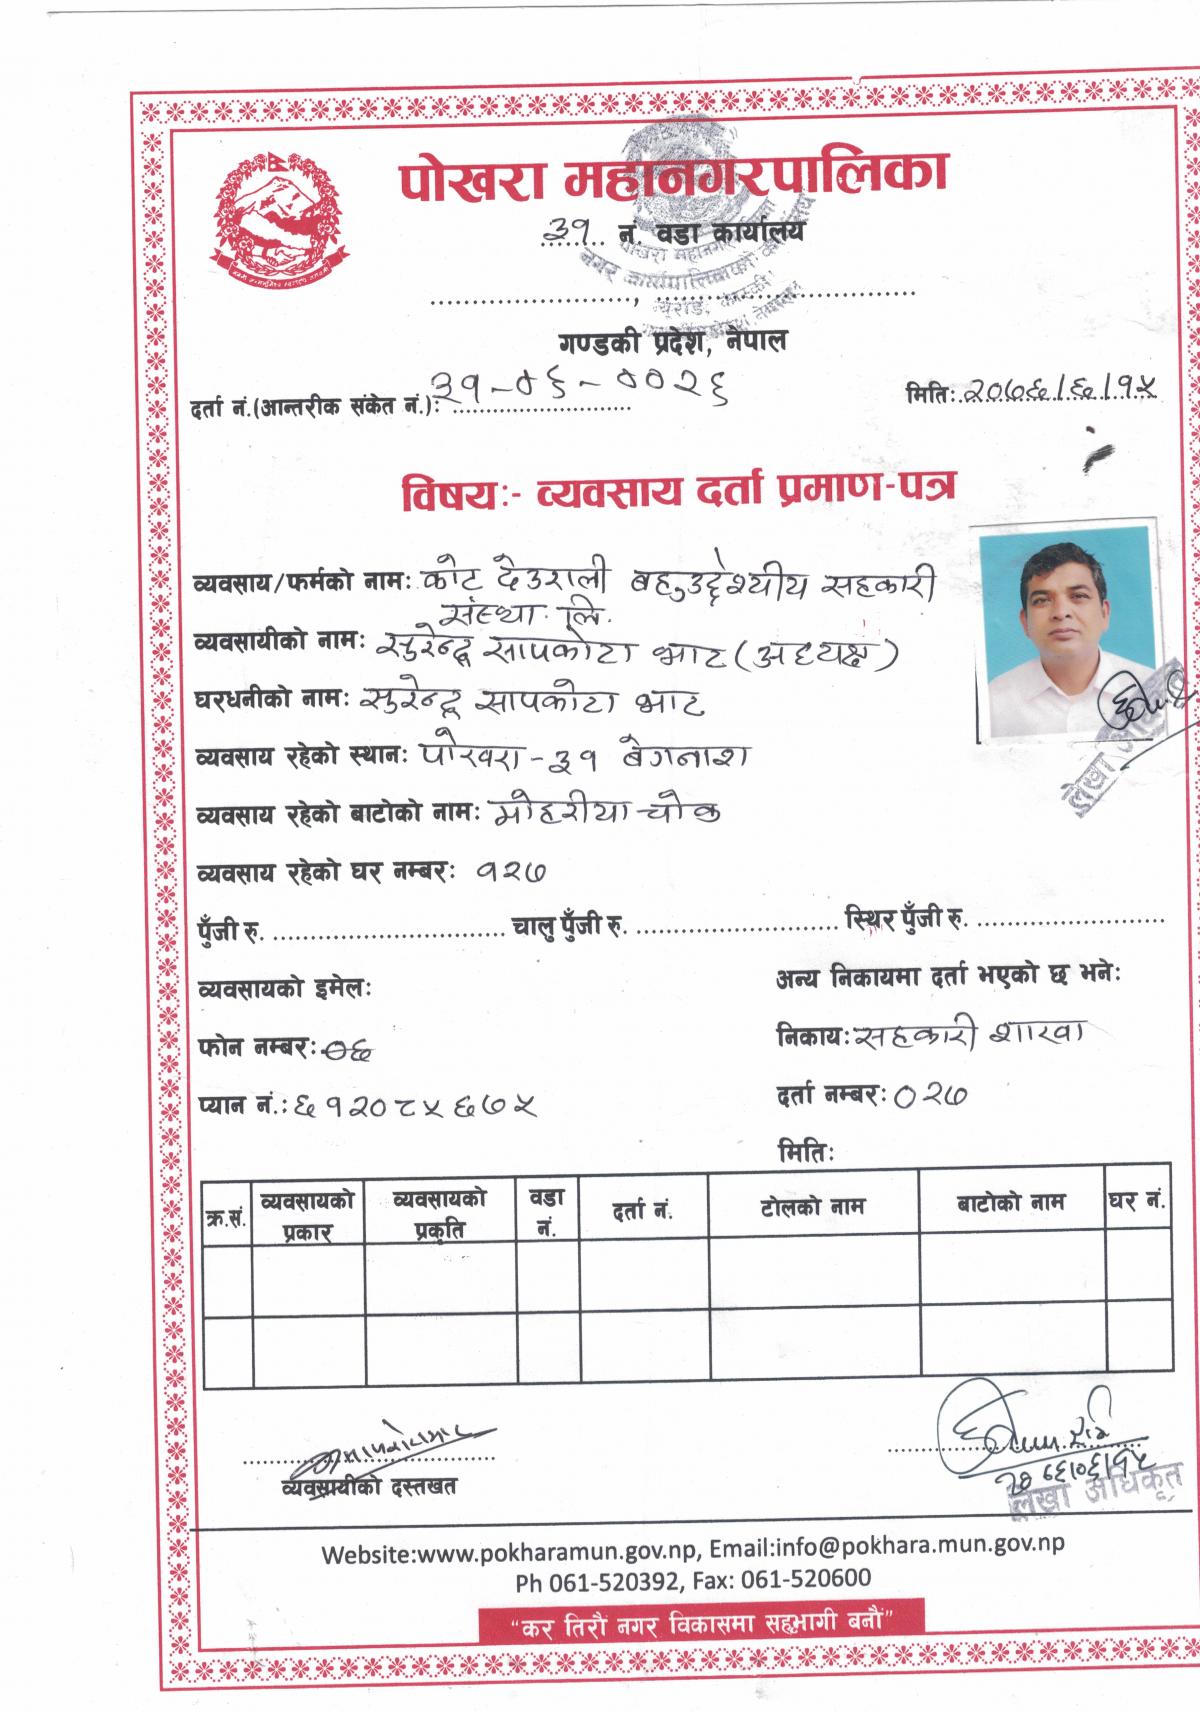 पोखरा महानगरपालिका
३१ नं. वडा कार्यालय
....................., ...........................
गण्डकी प्रदेश, नेपाल
दर्ता नं.(आन्तरीक संकेत नं.): ३१-०६-००२६
मिति: २०७६/६/१५
विषय:- व्यवसाय दर्ता प्रमाण-पत्र
व्यवसाय/फर्मको नाम: कोट देउराली बहुउद्देश्यीय सहकारी
संस्था लि.
व्यवसायीको नाम: सुरेन्द्र सापकोटा भाट (अध्यक्ष)
घरधनीको नाम: सुरेन्द्र सापकोटा भाट
व्यवसाय रहेको स्थान: पोखरा-३१ बेगनाश
व्यवसाय रहेको बाटोको नाम: मोहरीया चोक
लेखा
व्यवसाय रहेको घर नम्बर: १२७
पुँजी रु. ............................... चालु पुँजी रु. ........................... स्थिर पुँजी रु. .........................
व्यवसायको इमेल:
अन्य निकायमा दर्ता भएको छ भने:
फोन नम्बर: ०६
निकाय: सहकारी शाखा
प्यान नं.: ६१२०८५६७५
दर्ता नम्बर: ०२७
मिति:
क्र.सं. व्यवसायको प्रकार व्यवसायको प्रकृति वडा नं. दर्ता नं. टोलको नाम बाटोको नाम घर नं.
व्यवसायीको दस्तखत
लेखा अधिकृत
Website:www.pokharamun.gov.np, Email:info@pokhara.mun.gov.np
Ph 061-520392, Fax: 061-520600
“कर तिरौं नगर विकासमा सहभागी बनौं”